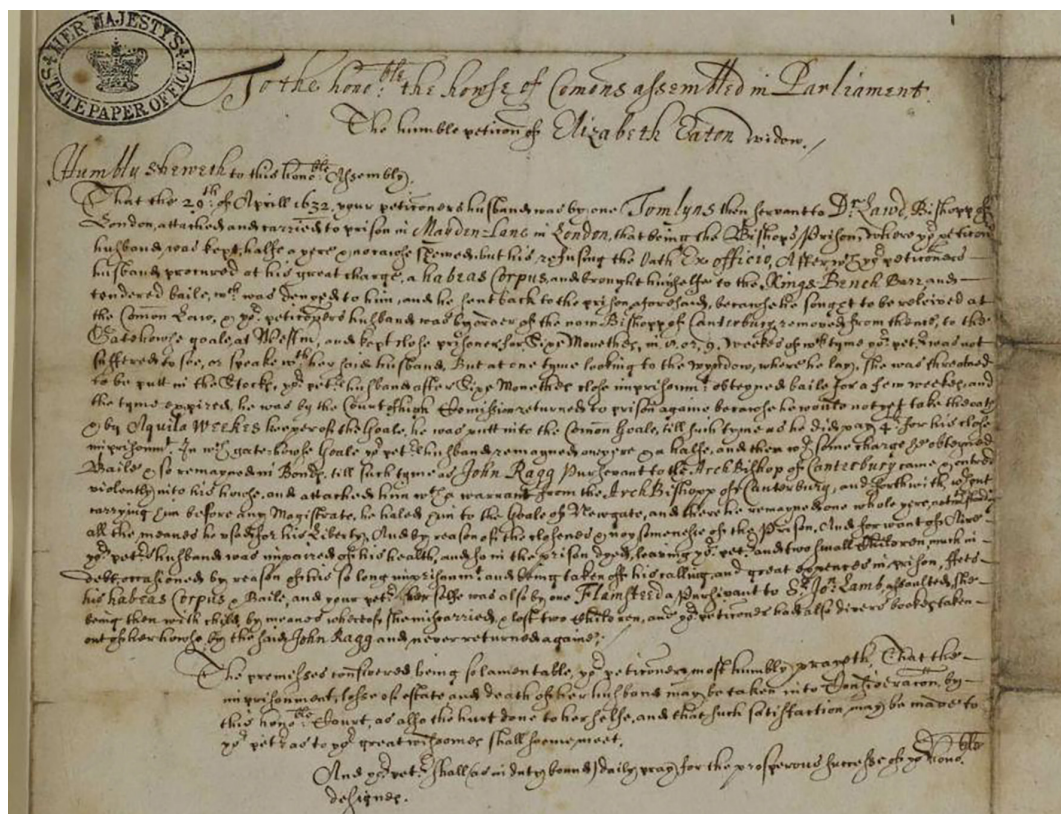 HER MAJESTY'S STATE PAPER OFFICE
To the hono:ble the howse of Comons assembled in Parliament
The humble peticon of Elizabeth Eaton widow./
Humbly sheweth to this hono:ble Assembly.
That the 29th of Aprill 1632, your peticoners husband was by one Tomlyns then servant to Dr Lawd, Bishopp of
London, attached and carried to prison in Mayden-Lane in London, that being the Bishops Prison, where yor peticonrs
husband was kept halfe a yere & no cawse shewed, but his refusing the Oath Ex officio, After wch yor peticoners
husband procured at his great charge, a habeas Corpus, and brought himselfe to the Kings Bench Barr, and
tendered baile, wch was denyed to him, and he sent back to the prison aforesaid, becawse he sought to be releived at
the Comon Law, & yor peticoners husband was by order of the now Bishopp of Canterbury, removed from thence, to the
Gatehowse goale at Westm, and kept close prisoner for Sixe Monethes, in 8. or. 9. weekes of wch tyme yor petr was not
suffered to see, or speake wth her said husband, But at one tyme looking to the wyndow, where he lay, she was threatned
to be putt in the Stocks, yor petrs husband after Sixe Monethes close imprisonmt obteyned baile for a few weekes, and
the tyme expired, he was by the Court of high Comission returned to prison againe becawse he would not yet take the oath
& by Aquila Weekes keeper of the Goale, he was putt into the Comon Goale, till such tyme as he did pay 4li for his close
imprisonmt. In wch gatehowse Goale yor petrs husband remayned one yere & a halfe, and then wth some charge he obteyned
Baile & so remayned in Bonds, till such tyme as John Ragg Pursevant to the Arch Bishop of Canterbury came & entred
violently into his howse, and attached him wth a warrant from the Arch Bishopp of Canterbury, and forthwith wthout
carrying him before any Magistrate, he haled him to the Goale of Newgate, and there he remayned one whole yere, notwthstanding
all the means he used for his Liberty, And by reason of the closenes & noysomenesse of the Prison, And for want of Aire
yor petrs husband was impaired of his health, and so in the prison dyed, leaving yor petr and two small Children, much in
debt, occasioned by reason of his so long imprisonmt and being taken off his calling, and great expences in prison, ffees
his habeas Corpus & Baile, and your petr her selfe was also by one Flamsteed a Pursivant to Sr Jo: Lamb assaulted, she
being then with child, by means whereof she miscarried, & lost two Children, and yor peticoner had also divers bookes taken
out of her howse by the said John Ragg and never returned againe.
The premisses considered being so lamentable, yor peticoner most humbly prayeth, That the
imprisonment, losse of estate and death of her husband may be taken into Consideracon, by
this hono:ble Court, as also the hurt done to her selfe, and that such satisfaction, may be made to
yor petr as to yor great wisdomes shall seeme meet.
And yor petr shall (as in duty bound) daily pray for the prosperous successe of yor hono:ble
designes.